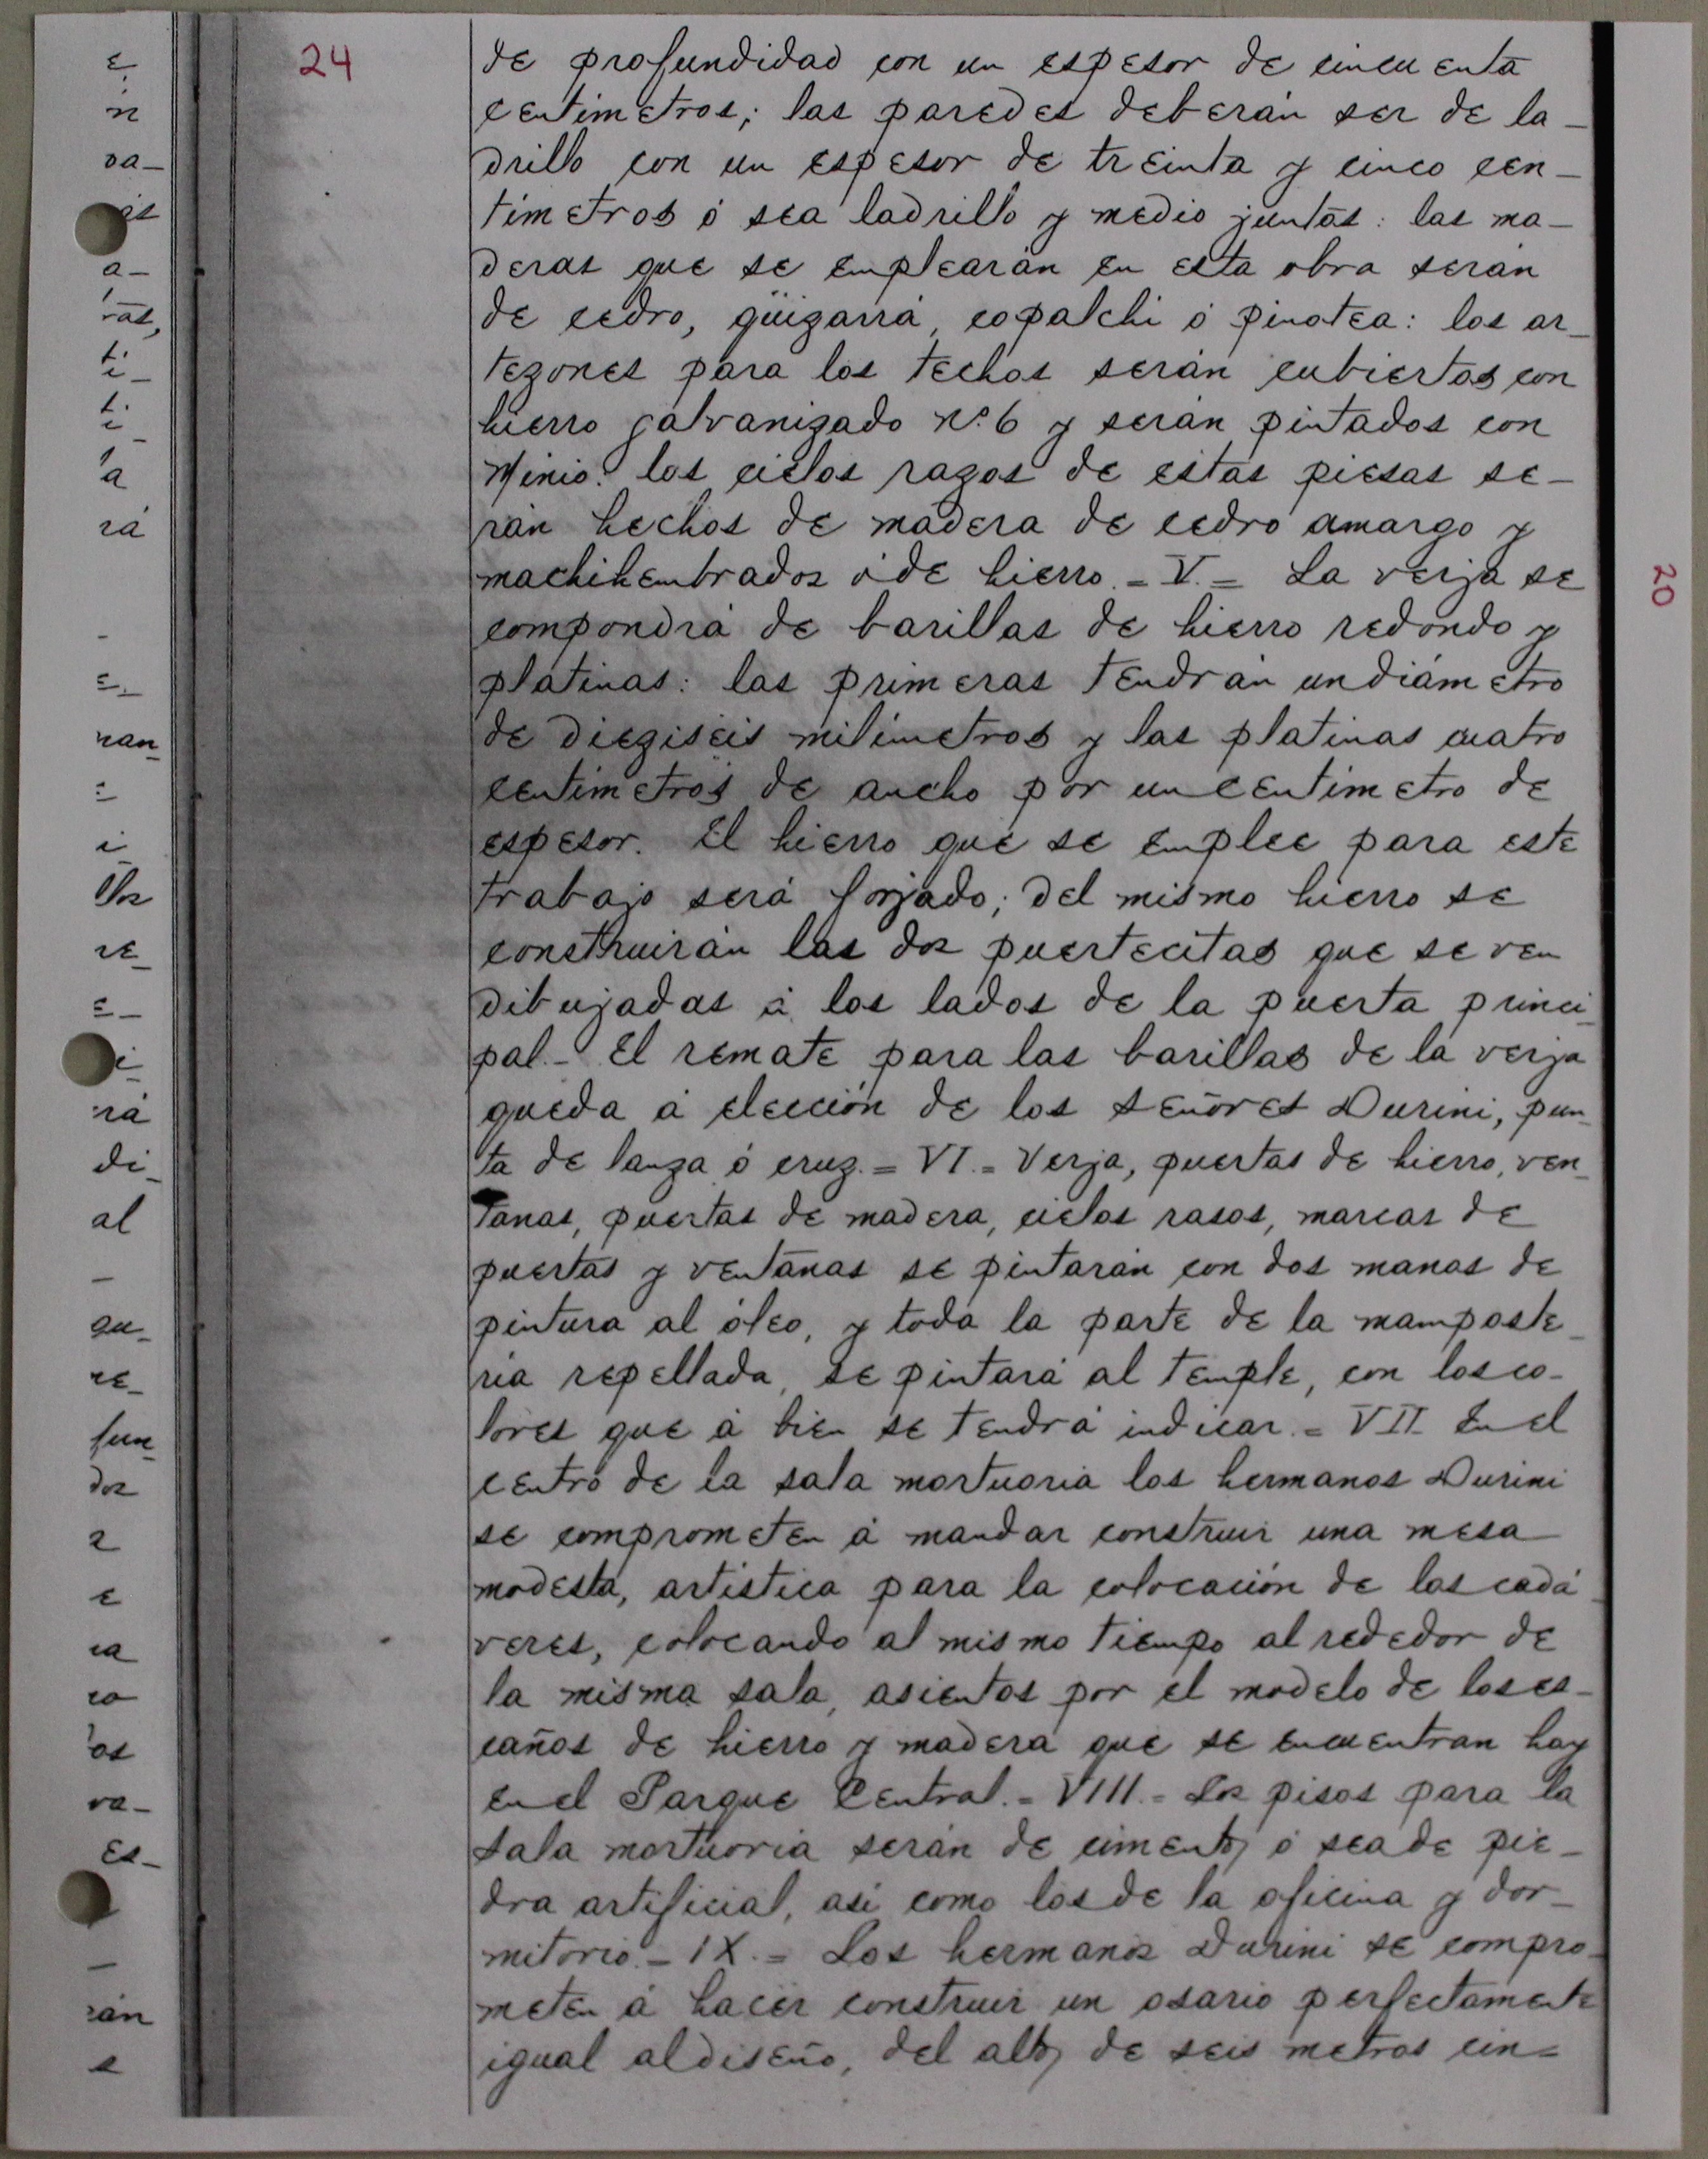 24
de profundidad con un espesor de cincuenta
centimetros; las paredes deberán ser de la_
drillo con un espesor de treinta y cinco cen_
timetros ó sea ladrillo y medio juntas: las ma_
deras que se emplearán en esta obra serán
de cedro, güizarrá, copalchi ó pinotea: los ar_
tezones para los techos serán cubiertos con
hierro galvanizado Nº 6 y serán pintados con
Minio: los cielos razos de estas piesas se_
rán hechos de madera de cedro amargo y
machihembrados ó de hierro. = V. = La verja se
compondrá de barillas de hierro redondo y
platinas: las primeras tendrán un diámetro
de diegiseis milimetros y las platinas cuatro
centimetros de ancho por un centimetro de
espesor. El hierro que se emplee para este
trabajo será forjado; del mismo hierro se
construirán las dos puertecitas que se ven
dibujadas á los lados de la puerta princi_
pal.- El remate para las barillas de la verja
queda á elección de los señores Durini, pun_
ta de lanza ó cruz. = VI. = Verja, puertas de hierro, ven_
tanas, puertas de madera, cielos rasos, marcas de
puertas y ventanas se pintarán con dos manos de
pintura al óleo, y toda la parte de la mamposte_
ria repellada, se pintará al temple, con los co-
lores que á bien se tendrá indicar. = VII. En el
centro de la sala mortuoria los hermanos Durini
se comprometen á mandar construir una mesa
modesta, artistica para la colocación de los cadá_
veres, colocando al mismo tiempo al rededor de
la misma sala, asientos por el modelo de los es-
caños de hierro y madera que se encuentran hoy
en el Parque Central. = VIII. = Los pisos para la
sala mortuoria serán de cimento, ó sea de pie_
dra artificial, asi como los de la oficina y dor_
mitorio. = IX. = Los hermanos Durini se compro_
meten á hacer construir un osario perfectamente
igual al diseño, del alto, de seis metros cin=
20